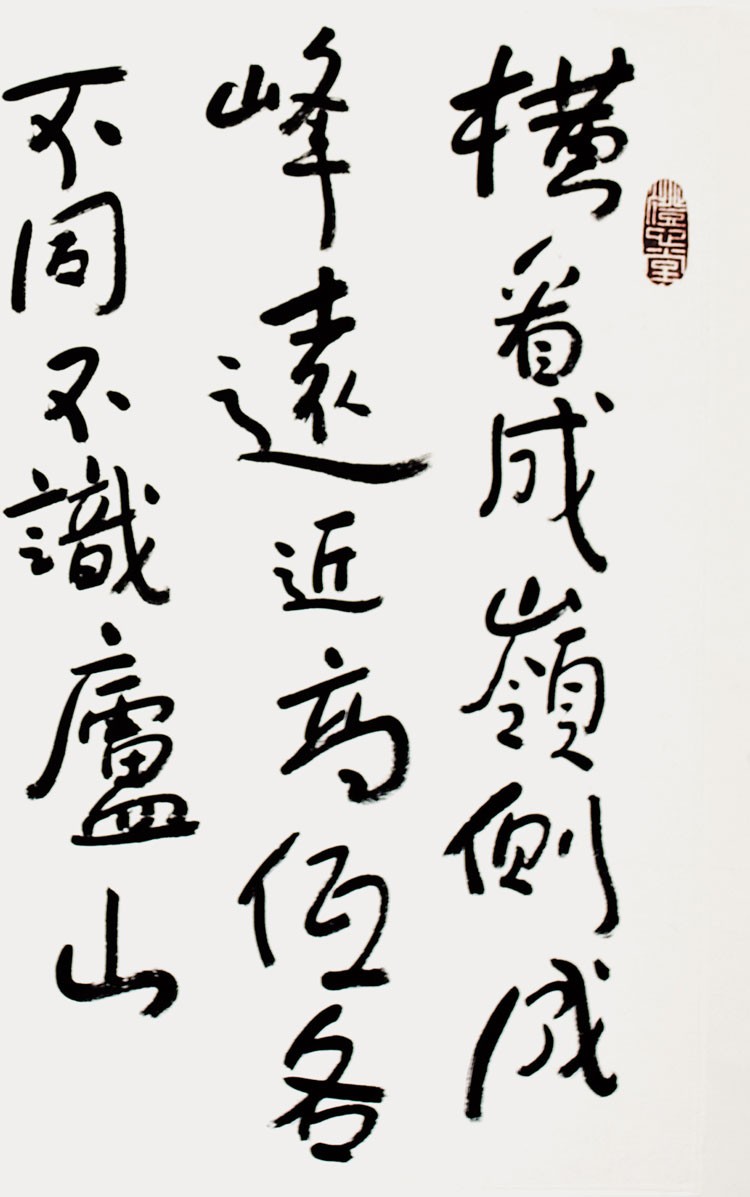 橫看成嶺側成
峰遠近高低各
不同不識廬山